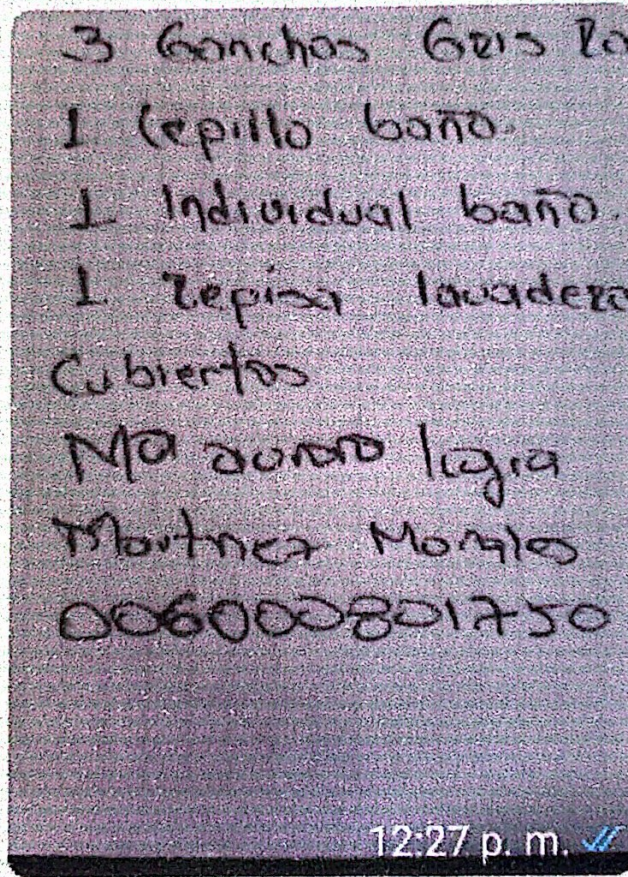 3 Ganchos Gris Ro
1 Cepillo baño.
1 Individual baño.
1 Repisa lavadero
Cubiertos
Ma aurora ligia
Martnez Morales
006000801750
12:27 p. m.